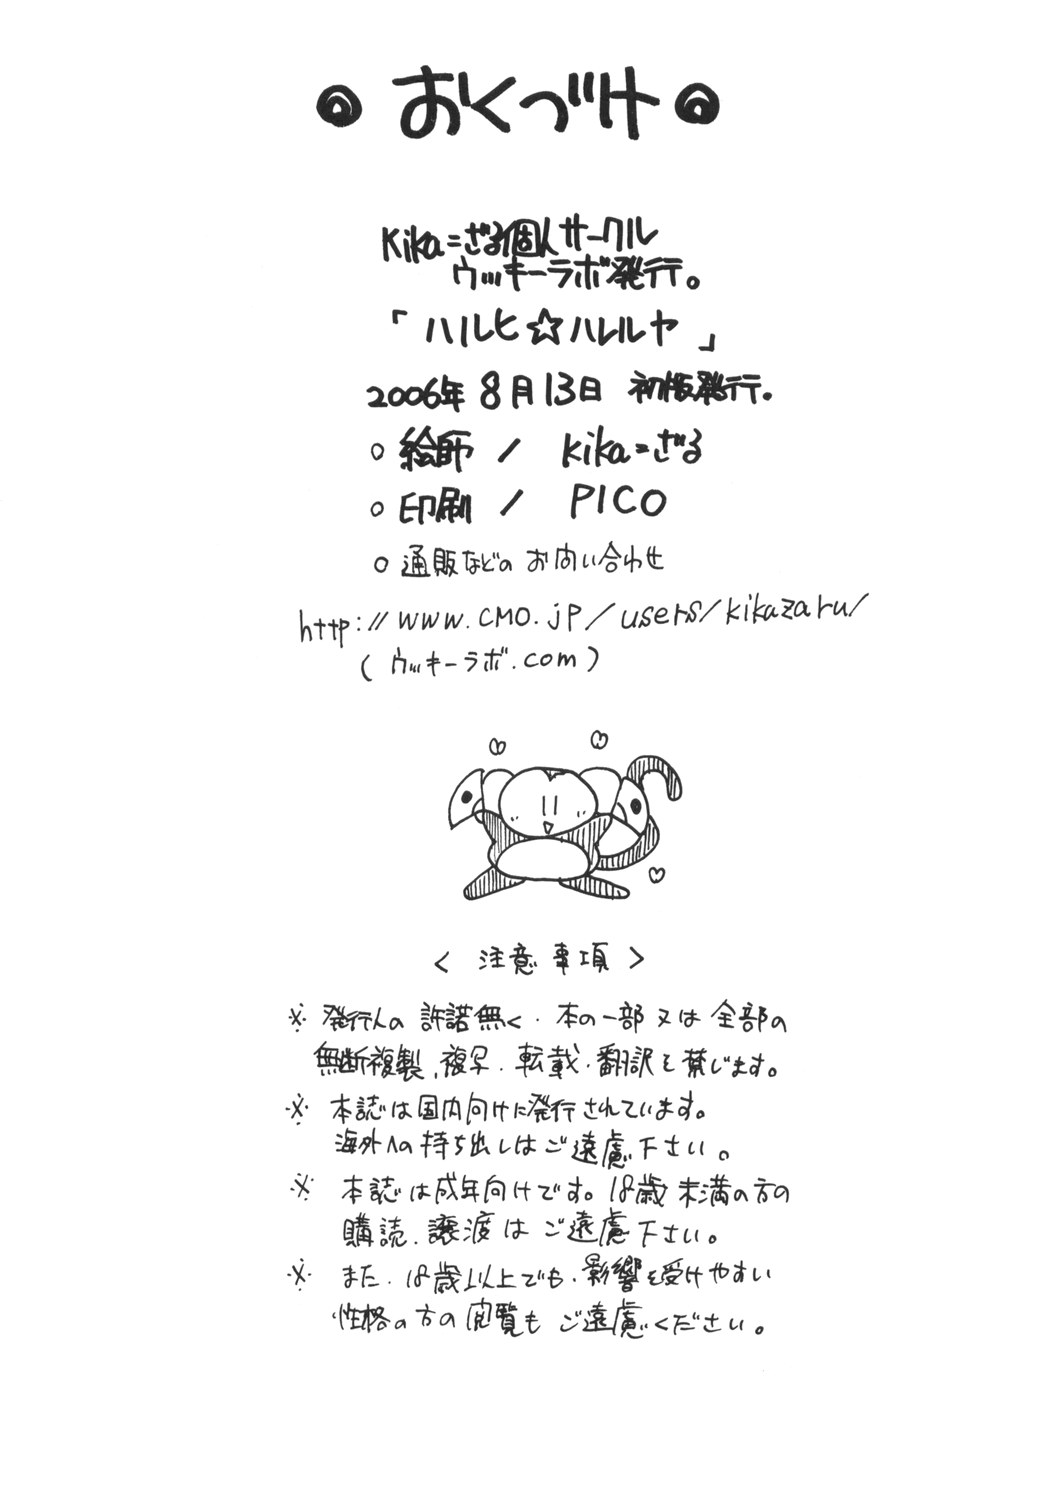 おくづけ
Kika=ざる個人サークル
ウッキーラボ発行。
「ハルヒ☆ハレルヤ」
2006年 8月13日 初版発行。
○ 絵師 / kika=ざる
○ 印刷 / PICO
○ 通販などの お問い合わせ
http://www.cmo.jp/users/kikazaru/
(ウッキーラボ.com)
< 注意事項 >
※ 発行人の 許諾無く、本の一部 又は 全部の
無断複製、複写、転載、翻訳を禁じます。
※ 本誌は国内向けに発行されています。
海外への持ち出しはご遠慮下さい。
※ 本誌は成年向けです。18歳未満の方の
購読、譲渡はご遠慮下さい。
※ また、18歳以上でも、影響を受けやすい
性格の方の閲覧もご遠慮ください。